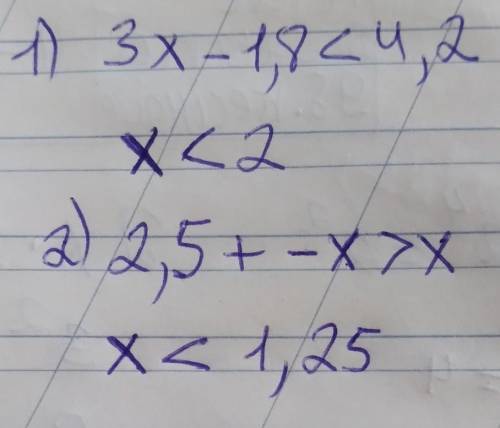 1) 3x - 1,8 < 4,2
x < 2
2) 2,5 + - x > x
x < 1,25